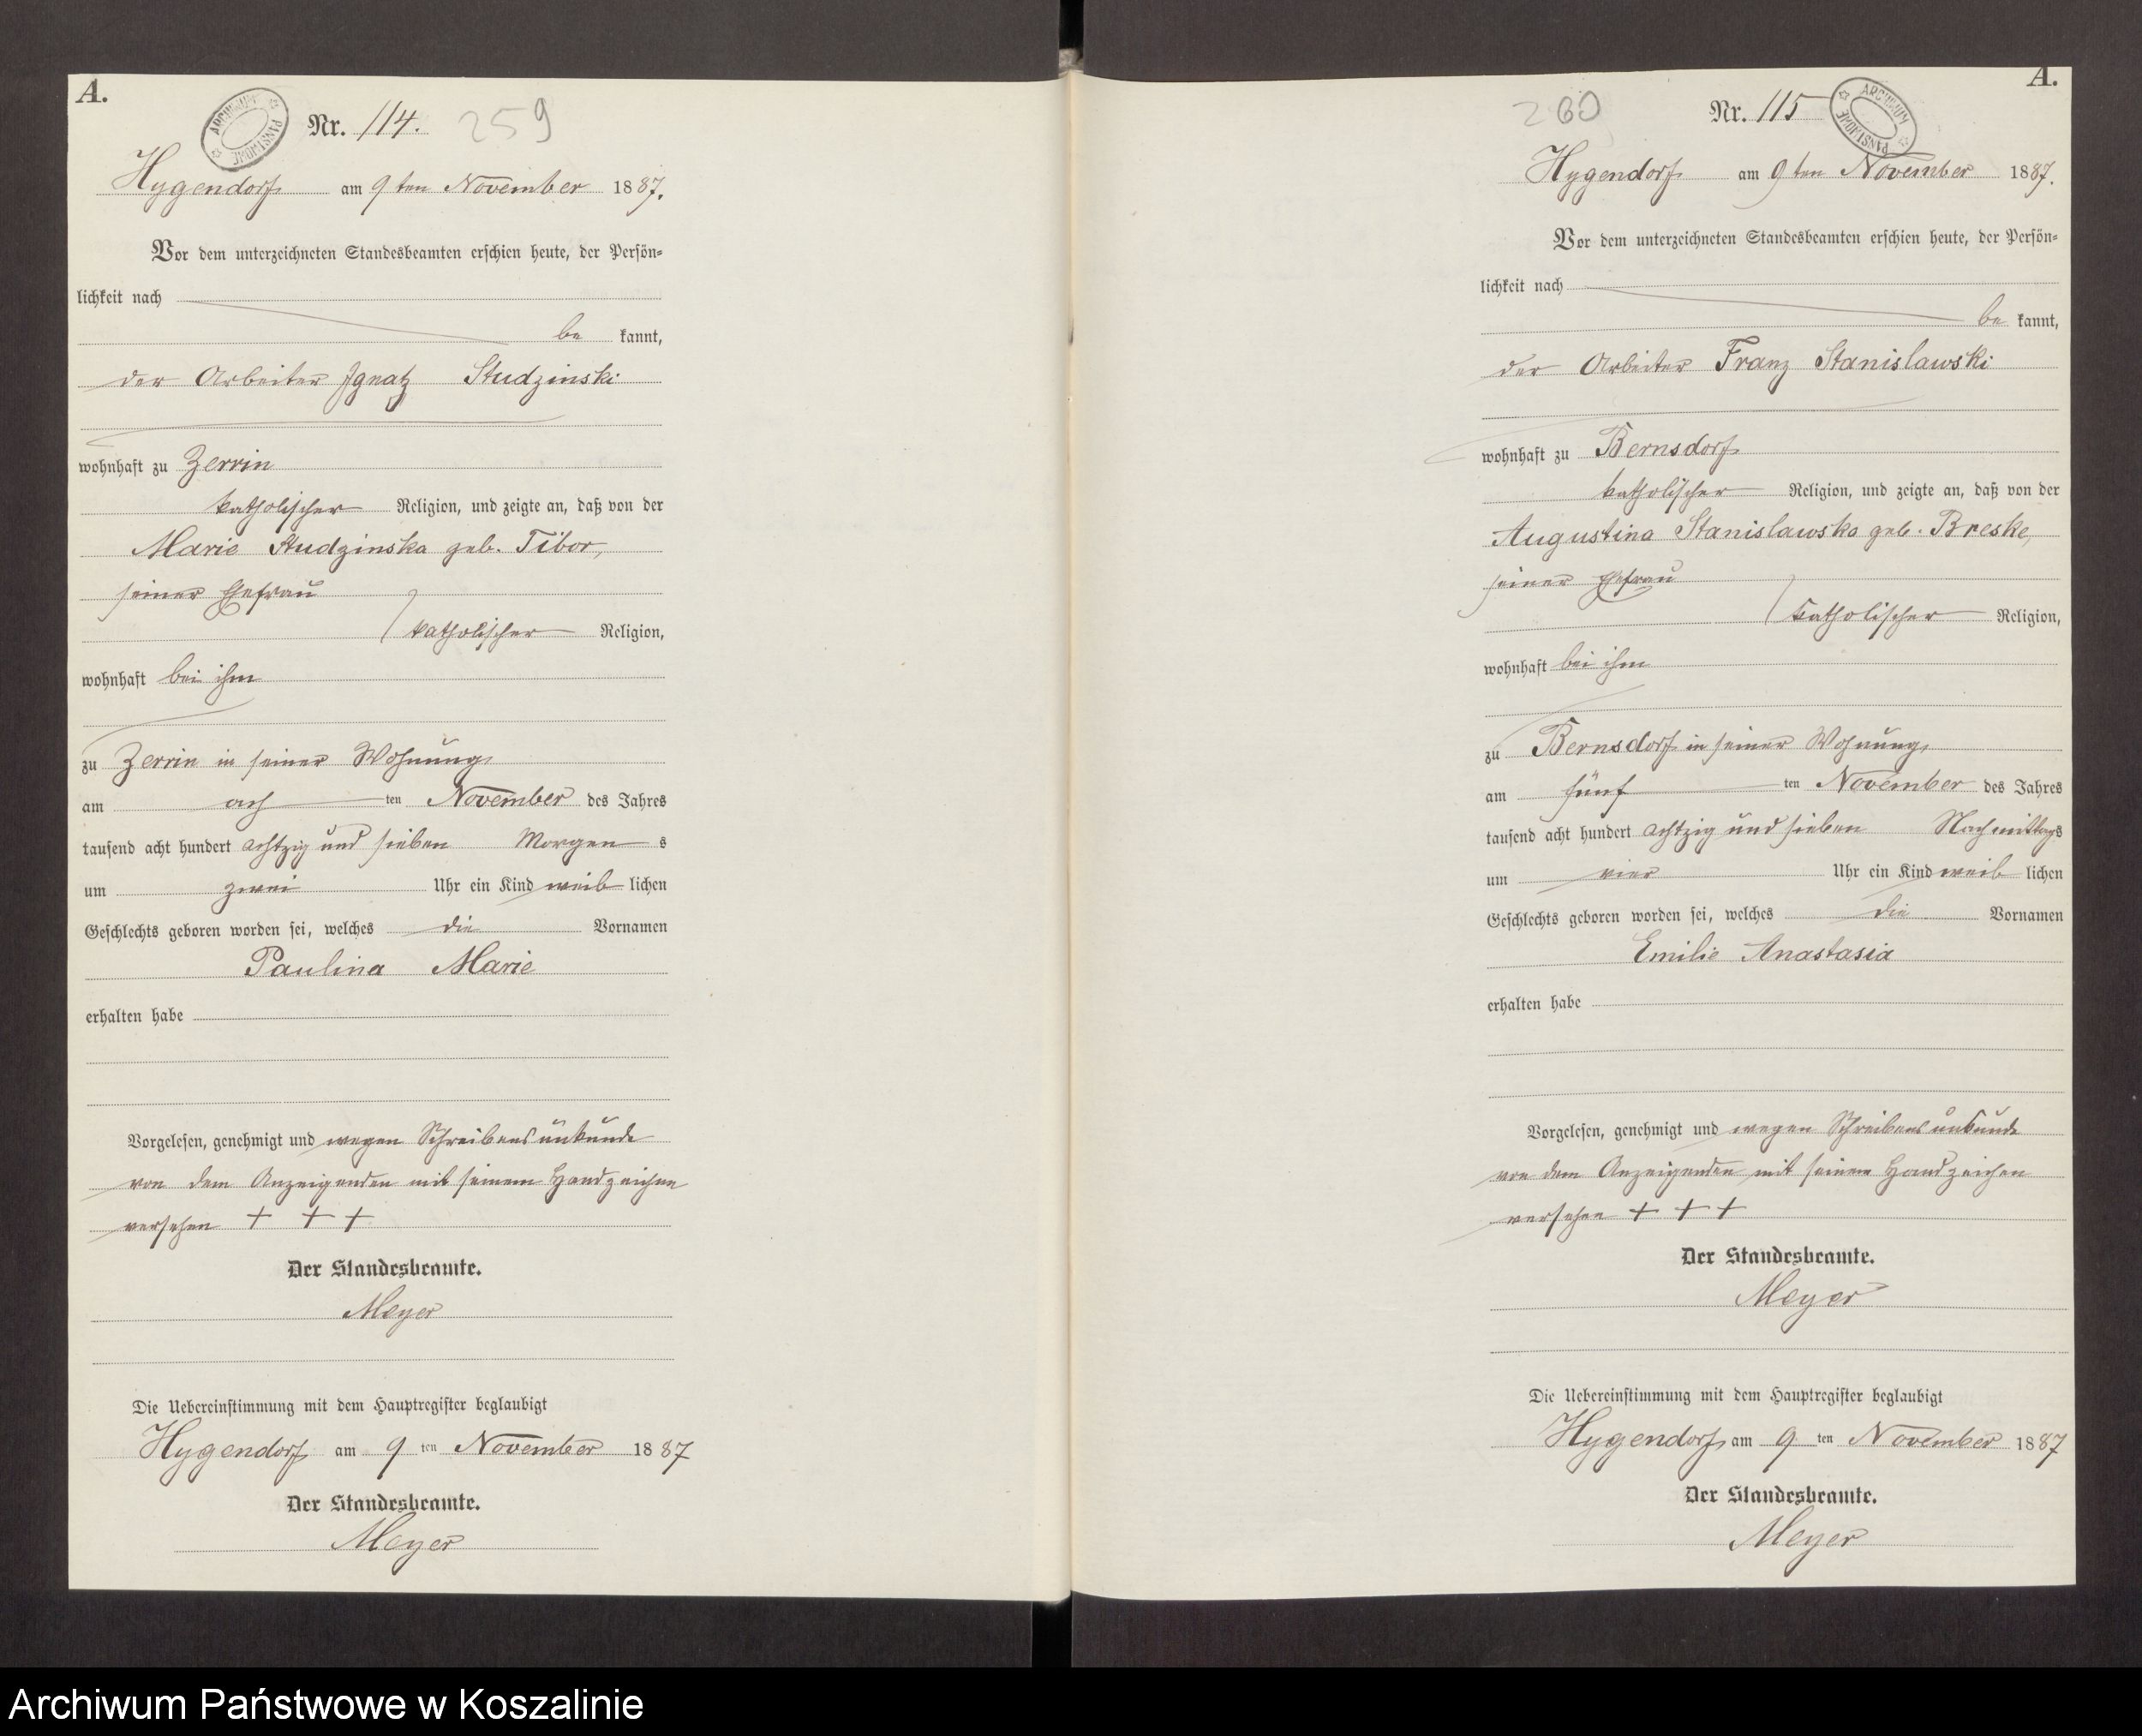 A.
ARCHIWUM PAŃSTWOWE
Nr. 114. 259
Hygendorf am 9ten November 1887.
Vor dem unterzeichneten Standesbeamten erschien heute, der Persön-
lichkeit nach
be kannt,
der Arbeiter Ignatz Studzinski
wohnhaft zu Zerrin
katholischer Religion, und zeigte an, daß von der
Marie Studzinska geb. Tibor,
seiner Ehefrau
katholischer Religion,
wohnhaft bei ihm
zu Zerrin in seiner Wohnung
am ach ten November des Jahres
tausend acht hundert achtzig und sieben Morgen s
um zwei Uhr ein Kind weib lichen
Geschlechts geboren worden sei, welches die Vornamen
Paulina Marie
erhalten habe
Vorgelesen, genehmigt und wegen Schreibensunkunde
von dem Anzeigenden mit seinem Handzeichen
versehen + + +
Der Standesbeamte.
Meyer
Die Uebereinstimmung mit dem Hauptregister beglaubigt
Hygendorf am 9 ten November 1887
Der Standesbeamte.
Meyer
A.
260 Nr. 115
ARCHIWUM PAŃSTWOWE
Hygendorf am 9ten November 1887.
Vor dem unterzeichneten Standesbeamten erschien heute, der Persön-
lichkeit nach
be kannt,
der Arbeiter Franz Stanislawski
wohnhaft zu Bernsdorf
katholischer Religion, und zeigte an, daß von der
Augustina Stanislawska geb. Breske,
seiner Ehefrau
katholischer Religion,
wohnhaft bei ihm
zu Bernsdorf in seiner Wohnung
am fünf ten November des Jahres
tausend acht hundert achtzig und sieben Nachmittags
um vier Uhr ein Kind weib lichen
Geschlechts geboren worden sei, welches die Vornamen
Emilie Anastasia
erhalten habe
Vorgelesen, genehmigt und wegen Schreibensunkunde
von dem Anzeigenden mit seinem Handzeichen
versehen + + +
Der Standesbeamte.
Meyer
Die Uebereinstimmung mit dem Hauptregister beglaubigt
Hygendorf am 9 ten November 1887
Der Standesbeamte.
Meyer
Archiwum Państwowe w Koszalinie